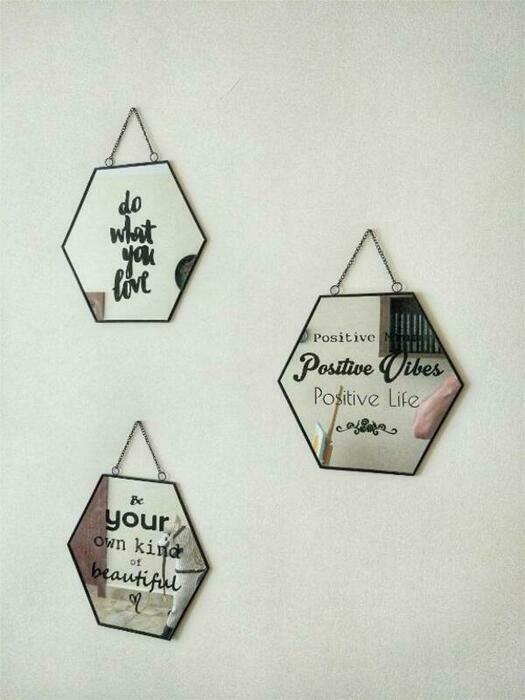 do
what
you
love
Positive Mind
Positive Vibes
Positive Life
Be
your
own kind
of
beautiful